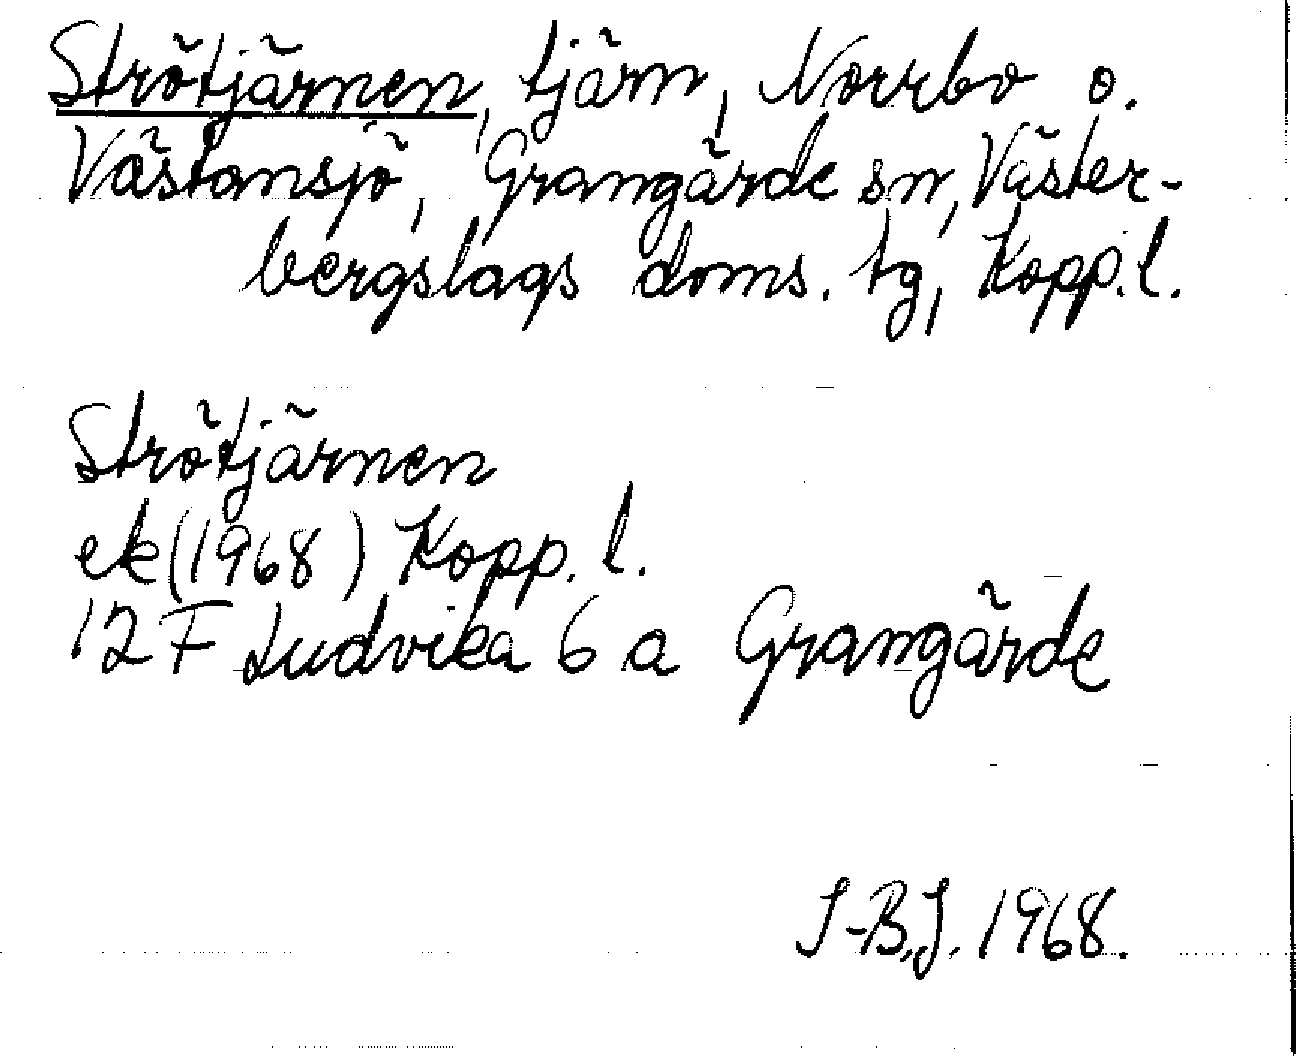 Strötjärnen, tjärn, Norrbo o.
Västansjö, Grangärde sn, Väster-
bergslags doms. tg, Kopp. l.
Strötjärnen
ek (1968) Kopp. l.
12 F Ludvika 6 a Grangärde
I-B.J. 1968.